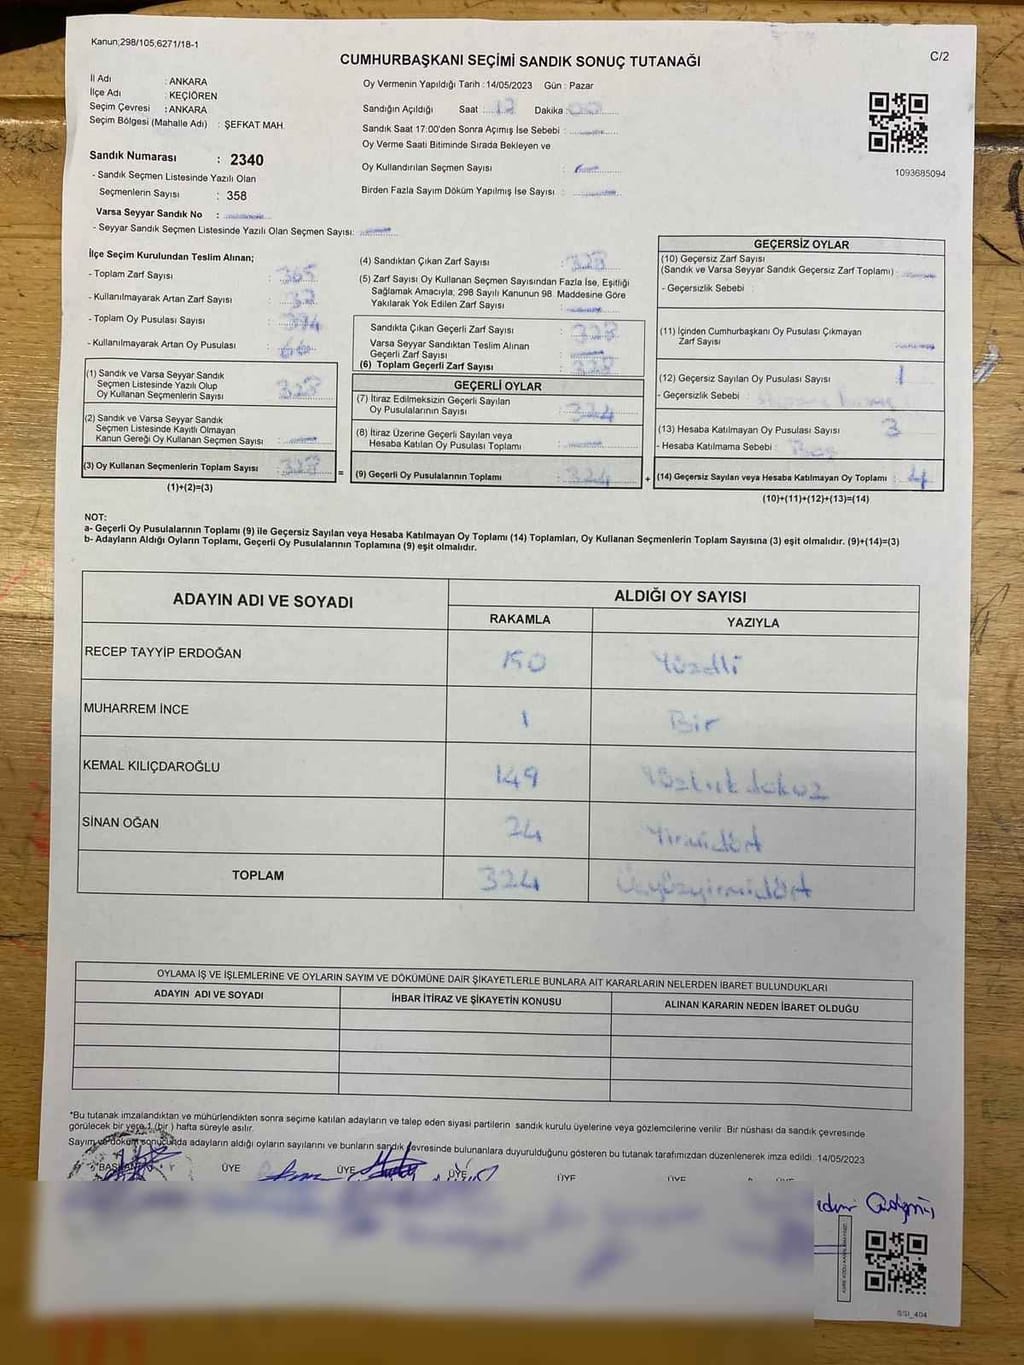 Kanun,298/105,6271/18-1
C/2
CUMHURBAŞKANI SEÇİMİ SANDIK SONUÇ TUTANAĞI
İl Adı : ANKARA
İlçe Adı : KEÇİÖREN
Seçim Çevresi : ANKARA
Seçim Bölgesi (Mahalle Adı) : ŞEFKAT MAH.
Sandık Numarası : 2340
- Sandık Seçmen Listesinde Yazılı Olan
Seçmenlerin Sayısı : 358
Varsa Seyyar Sandık No :
- Seyyar Sandık Seçmen Listesinde Yazılı Olan Seçmen Sayısı:
Oy Vermenin Yapıldığı Tarih : 14/05/2023 Gün : Pazar
Sandığın Açıldığı Saat Dakika : 00
Sandık Saat 17:00'den Sonra Açımış İse Sebebi :
Oy Verme Saati Bitiminde Sırada Bekleyen ve
Oy Kullandırılan Seçmen Sayısı :
Birden Fazla Sayım Döküm Yapılmış İse Sayısı :
1093685094
İlçe Seçim Kurulundan Teslim Alınan;
- Toplam Zarf Sayısı : 365
- Kullanılmayarak Artan Zarf Sayısı : 37
- Toplam Oy Pusulası Sayısı : 394
- Kullanılmayarak Artan Oy Pusulası : 66
(1) Sandık ve Varsa Seyyar Sandık
Seçmen Listesinde Yazılı Olup
Oy Kullanan Seçmenlerin Sayısı : 328
(2) Sandık ve Varsa Seyyar Sandık
Seçmen Listesinde Kayıtlı Olmayan
Kanun Gereği Oy Kullanan Seçmen Sayısı :
(3) Oy Kullanan Seçmenlerin Toplam Sayısı : 328
(1)+(2)=(3)
=
(4) Sandıktan Çıkan Zarf Sayısı : 328
(5) Zarf Sayısı Oy Kullanan Seçmen Sayısından Fazla İse, Eşitliği
Sağlamak Amacıyla, 298 Sayılı Kanunun 98. Maddesine Göre
Yakılarak Yok Edilen Zarf Sayısı :
Sandıkta Çıkan Geçerli Zarf Sayısı : 328
Varsa Seyyar Sandıktan Teslim Alınan
Geçerli Zarf Sayısı :
(6) Toplam Geçerli Zarf Sayısı : 328
GEÇERLİ OYLAR
(7) İtiraz Edilmeksizin Geçerli Sayılan
Oy Pusulalarının Sayısı : 324
(8) İtiraz Üzerine Geçerli Sayılan veya
Hesaba Katılan Oy Pusulası Toplamı :
(9) Geçerli Oy Pusulalarının Toplamı : 324
+
GEÇERSİZ OYLAR
(10) Geçersiz Zarf Sayısı
(Sandık ve Varsa Seyyar Sandık Geçersiz Zarf Toplamı) :
- Geçersizlik Sebebi :
(11) İçinden Cumhurbaşkanı Oy Pusulası Çıkmayan
Zarf Sayısı :
(12) Geçersiz Sayılan Oy Pusulası Sayısı : 1
- Geçersizlik Sebebi :
(13) Hesaba Katılmayan Oy Pusulası Sayısı : 3
- Hesaba Katılmama Sebebi : Boş
(14) Geçersiz Sayılan veya Hesaba Katılmayan Oy Toplamı : 4
(10)+(11)+(12)+(13)=(14)
NOT:
a- Geçerli Oy Pusulalarının Toplamı (9) ile Geçersiz Sayılan veya Hesaba Katılmayan Oy Toplamı (14) Toplamları, Oy Kullanan Seçmenlerin Toplam Sayısına (3) eşit olmalıdır. (9)+(14)=(3)
b- Adayların Aldığı Oyların Toplamı, Geçerli Oy Pusulalarının Toplamına (9) eşit olmalıdır.
ADAYIN ADI VE SOYADI
ALDIĞI OY SAYISI
RAKAMLA YAZIYLA
RECEP TAYYİP ERDOĞAN 150 Yüzelli
MUHARREM İNCE 1 Bir
KEMAL KILIÇDAROĞLU 149 Yüzkırkdokuz
SİNAN OĞAN 24 Yirmidört
TOPLAM 324 Üçyüzyirmidört
OYLAMA İŞ VE İŞLEMLERİNE VE OYLARIN SAYIM VE DÖKÜMÜNE DAİR ŞİKAYETLERLE BUNLARA AİT KARARLARIN NELERDEN İBARET BULUNDUKLARI
ADAYIN ADI VE SOYADI İHBAR İTİRAZ VE ŞİKAYETİN KONUSU ALINAN KARARIN NEDEN İBARET OLDUĞU
*Bu tutanak imzalandıktan ve mühürlendikten sonra seçime katılan adayların ve talep eden siyasi partilerin sandık kurulu üyelerine veya gözlemcilerine verilir. Bir nüshası da sandık çevresinde
görülecek bir yere 1 (bir ) hafta süreyle asılır.
Sayım ve döküm sonucunda adayların aldığı oyların sayılarını ve bunların sandık çevresinde bulunanlara duyurulduğunu gösteren bu tutanak tarafımızdan düzenlenerek imza edildi. 14/05/2023
BAŞKAN ÜYE ÜYE ÜYE ÜYE ÜYE ÜYE
SSI_404